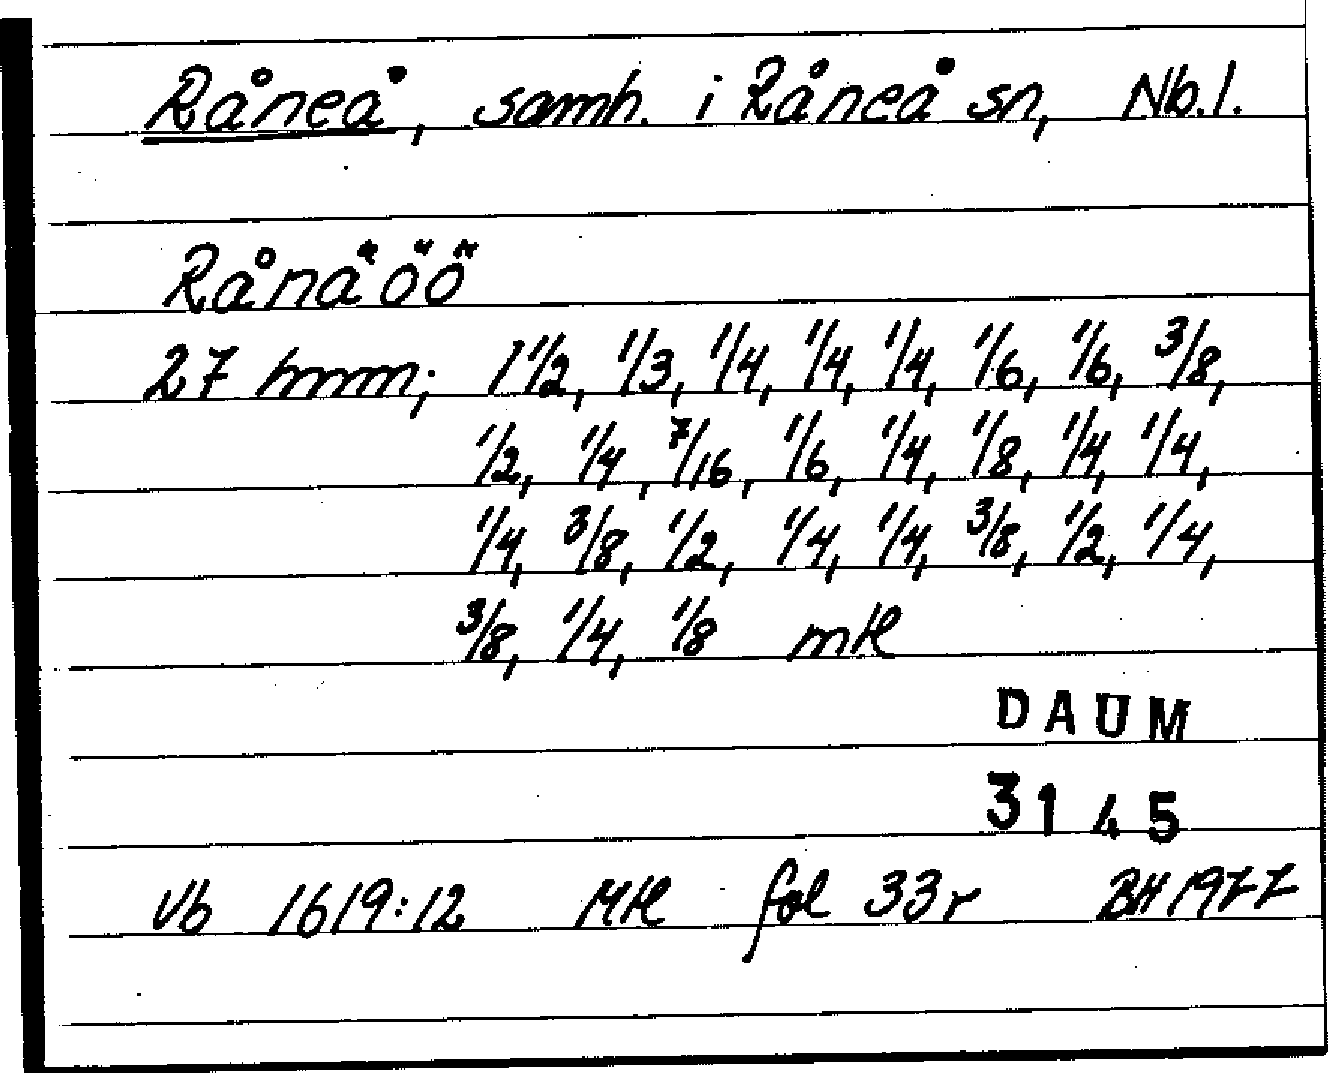 Råneå, samh. i Råneå sn, Nb.l.
Rånäöö
27 hmm; 1 1/2, 1/3, 1/4, 1/4, 1/4, 1/6, 1/6, 3/8,
1/2, 1/4, 7/16, 1/6, 1/4, 1/8, 1/4, 1/4,
1/4, 3/8, 1/2, 1/4, 1/4, 3/8, 1/2, 1/4,
3/8, 1/4, 1/8 mtl
DAUM
3145
Vb 1619:12 Mtl fol 33r BH 1977